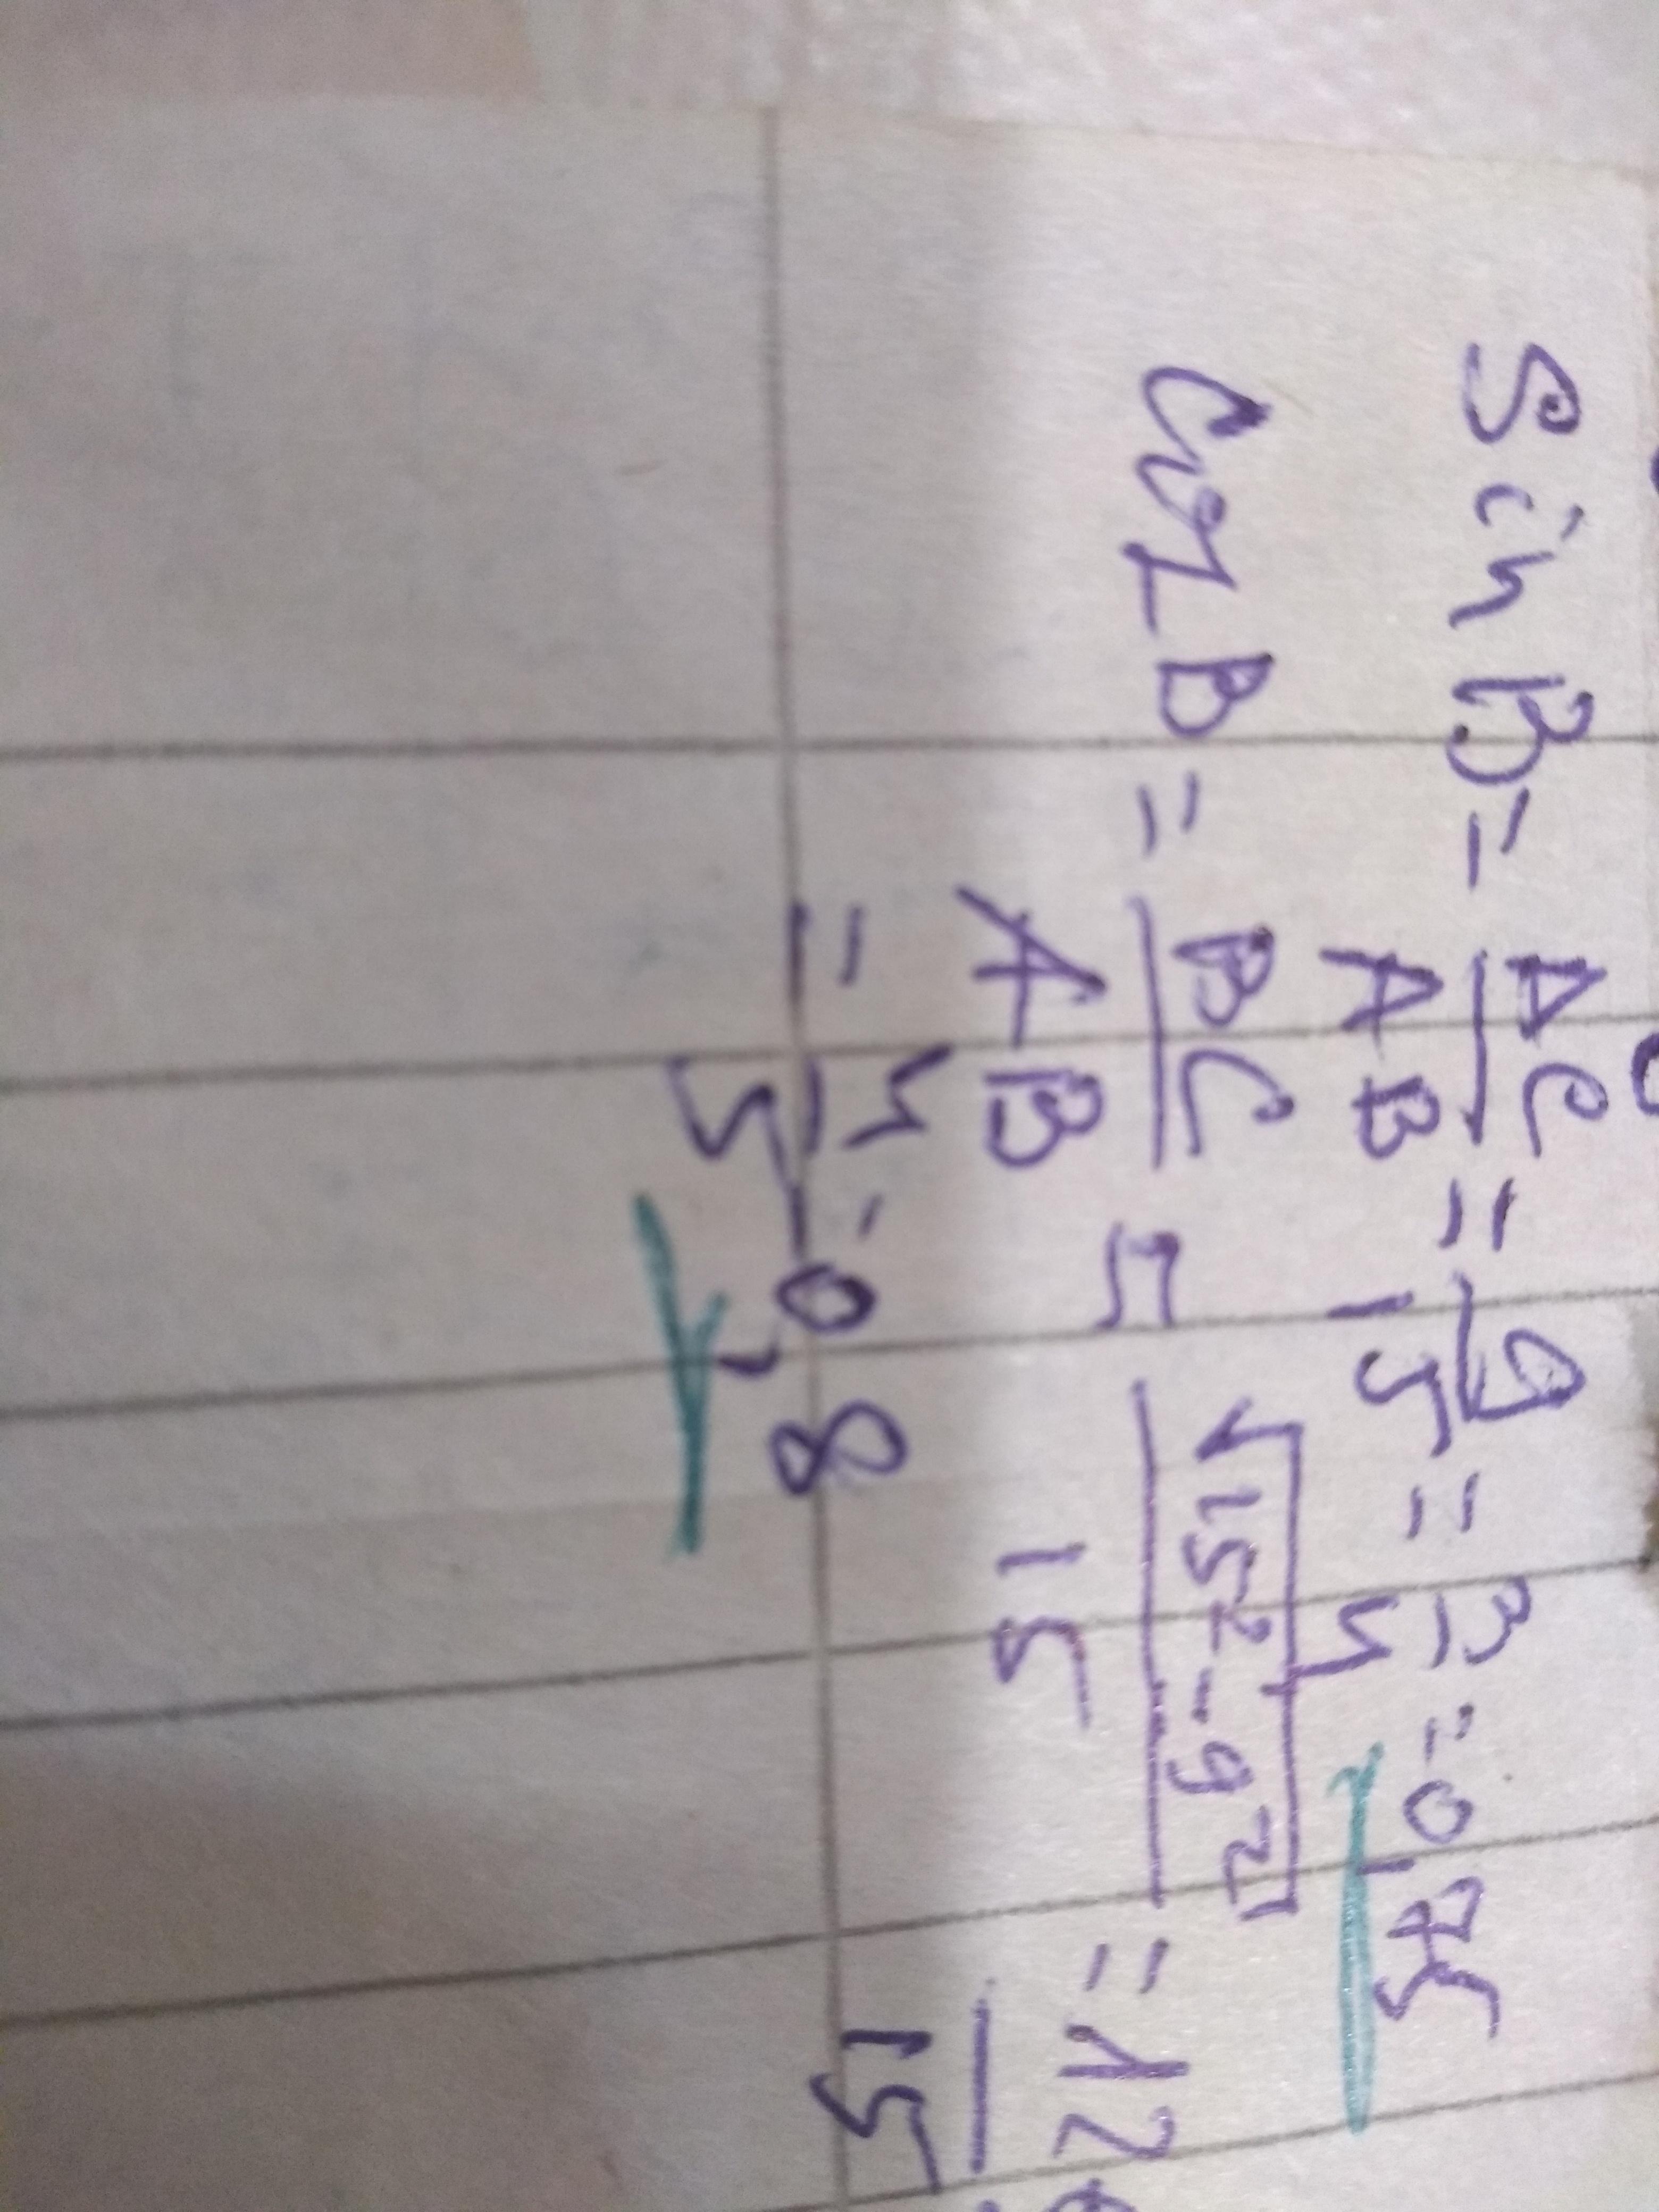 Sin B = AC/AB = 9/15 = 3/4 = 0,75
Cos B = BC/AB = √15²-9²/15 = 12/15
= 4/5 = 0,8